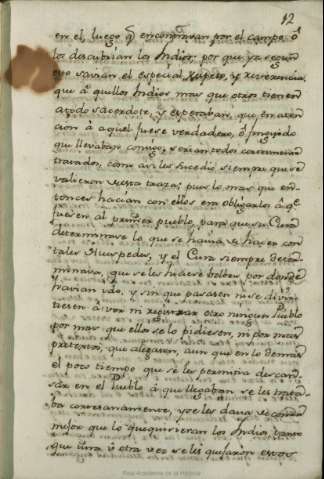 12
en el, luego q̃ encontravan por el campo, ô
los descubrian los Indios; por que ya segun
eyo savian el especial respeto, y reverencia,
que â quellos Indios mas que otros tienen
atodo sacerdote, y esperaban, que en aten-
cion â aquel fuese verdadero, ô fingido
que llevaban comigo, serian todos
tratados, como asi les sucediò siempre que se
valieron desta traza; pues lo mas que en-
tonces hacian con ellos era obligarlos â q̃
fuesen al primer pueblo, para que su Cura
determinase lo que se havia de hacer con
tales Huespedes, y el Cura siempre deter-
minava, que se les hiciese bolver por donde
havian ido, y sin que pasasen ni se divir-
tiesen â ver ni registrar otro ningun Pueblo
por mas que ellos se lo pidiesen, ni por mas
pretextos, que alegasen, aun que en lo demas
el poco tiempo que se les permitia descan-
sar en el Pueblo â que llegaban se les trata-
ba cortesanamente, y se les dava de comer
mejor que lo que quisieran los Indios, tanto
que una û otra vez se les quejaron estos
Real Academia de la Historia